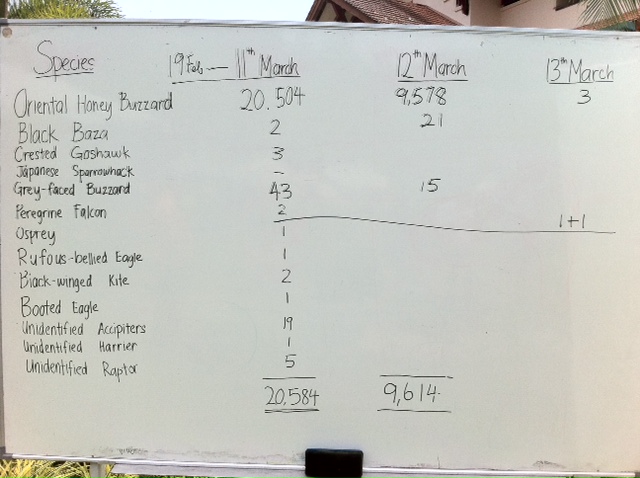 Species 19 Feb — 11th March 12th March 13th March
Oriental Honey Buzzard 20.504 9,578 3
Black Baza 2 21
Crested Goshawk 3
Japanese Sparrowhack -
Grey-faced Buzzard 43 15
Peregrine Falcon 2 1+1
Osprey 1
Rufous-bellied Eagle 1
Black-winged Kite 2
Booted Eagle 1
Unidentified Accipiters 19
Unidentified Harrier 1
Unidentified Raptor 5
20,584 9,614